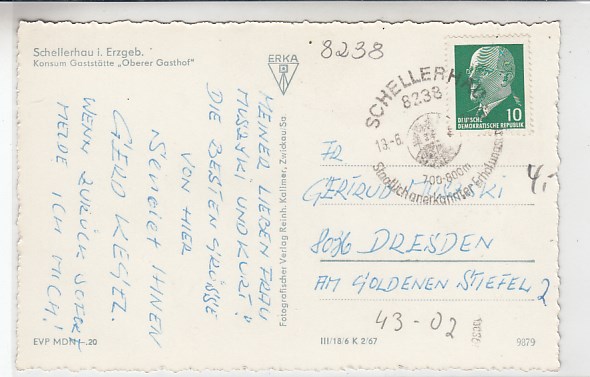 Schellerhau i. Erzgeb.
Konsum Gaststätte „Oberer Gasthof"
ERKA
8238
SCHELLERHAU
8238
13.-6.
700-800m
Staatlich anerkannter Erholungsort
10
DEUTSCHE
DEMOKRATISCHE REPUBLIK
MEINER LIEBEN FRAU
MUSALSKI UND KURT!
DIE BESTEN GRÜSSE
VON HIER
SENDET IHNEN
GERD KEGEL.
WENN ZURÜCK SOFORT
MELDE ICH MICH!
Fotografischer Verlag Reinh. Kallmer, Zwickau/Sa.
FR
GERTRUD
4,-
8036 DRESDEN
AM GOLDENEN STIEFEL 2
43-02
EVP MDN -.20
III/18/6 K 2/67
9879